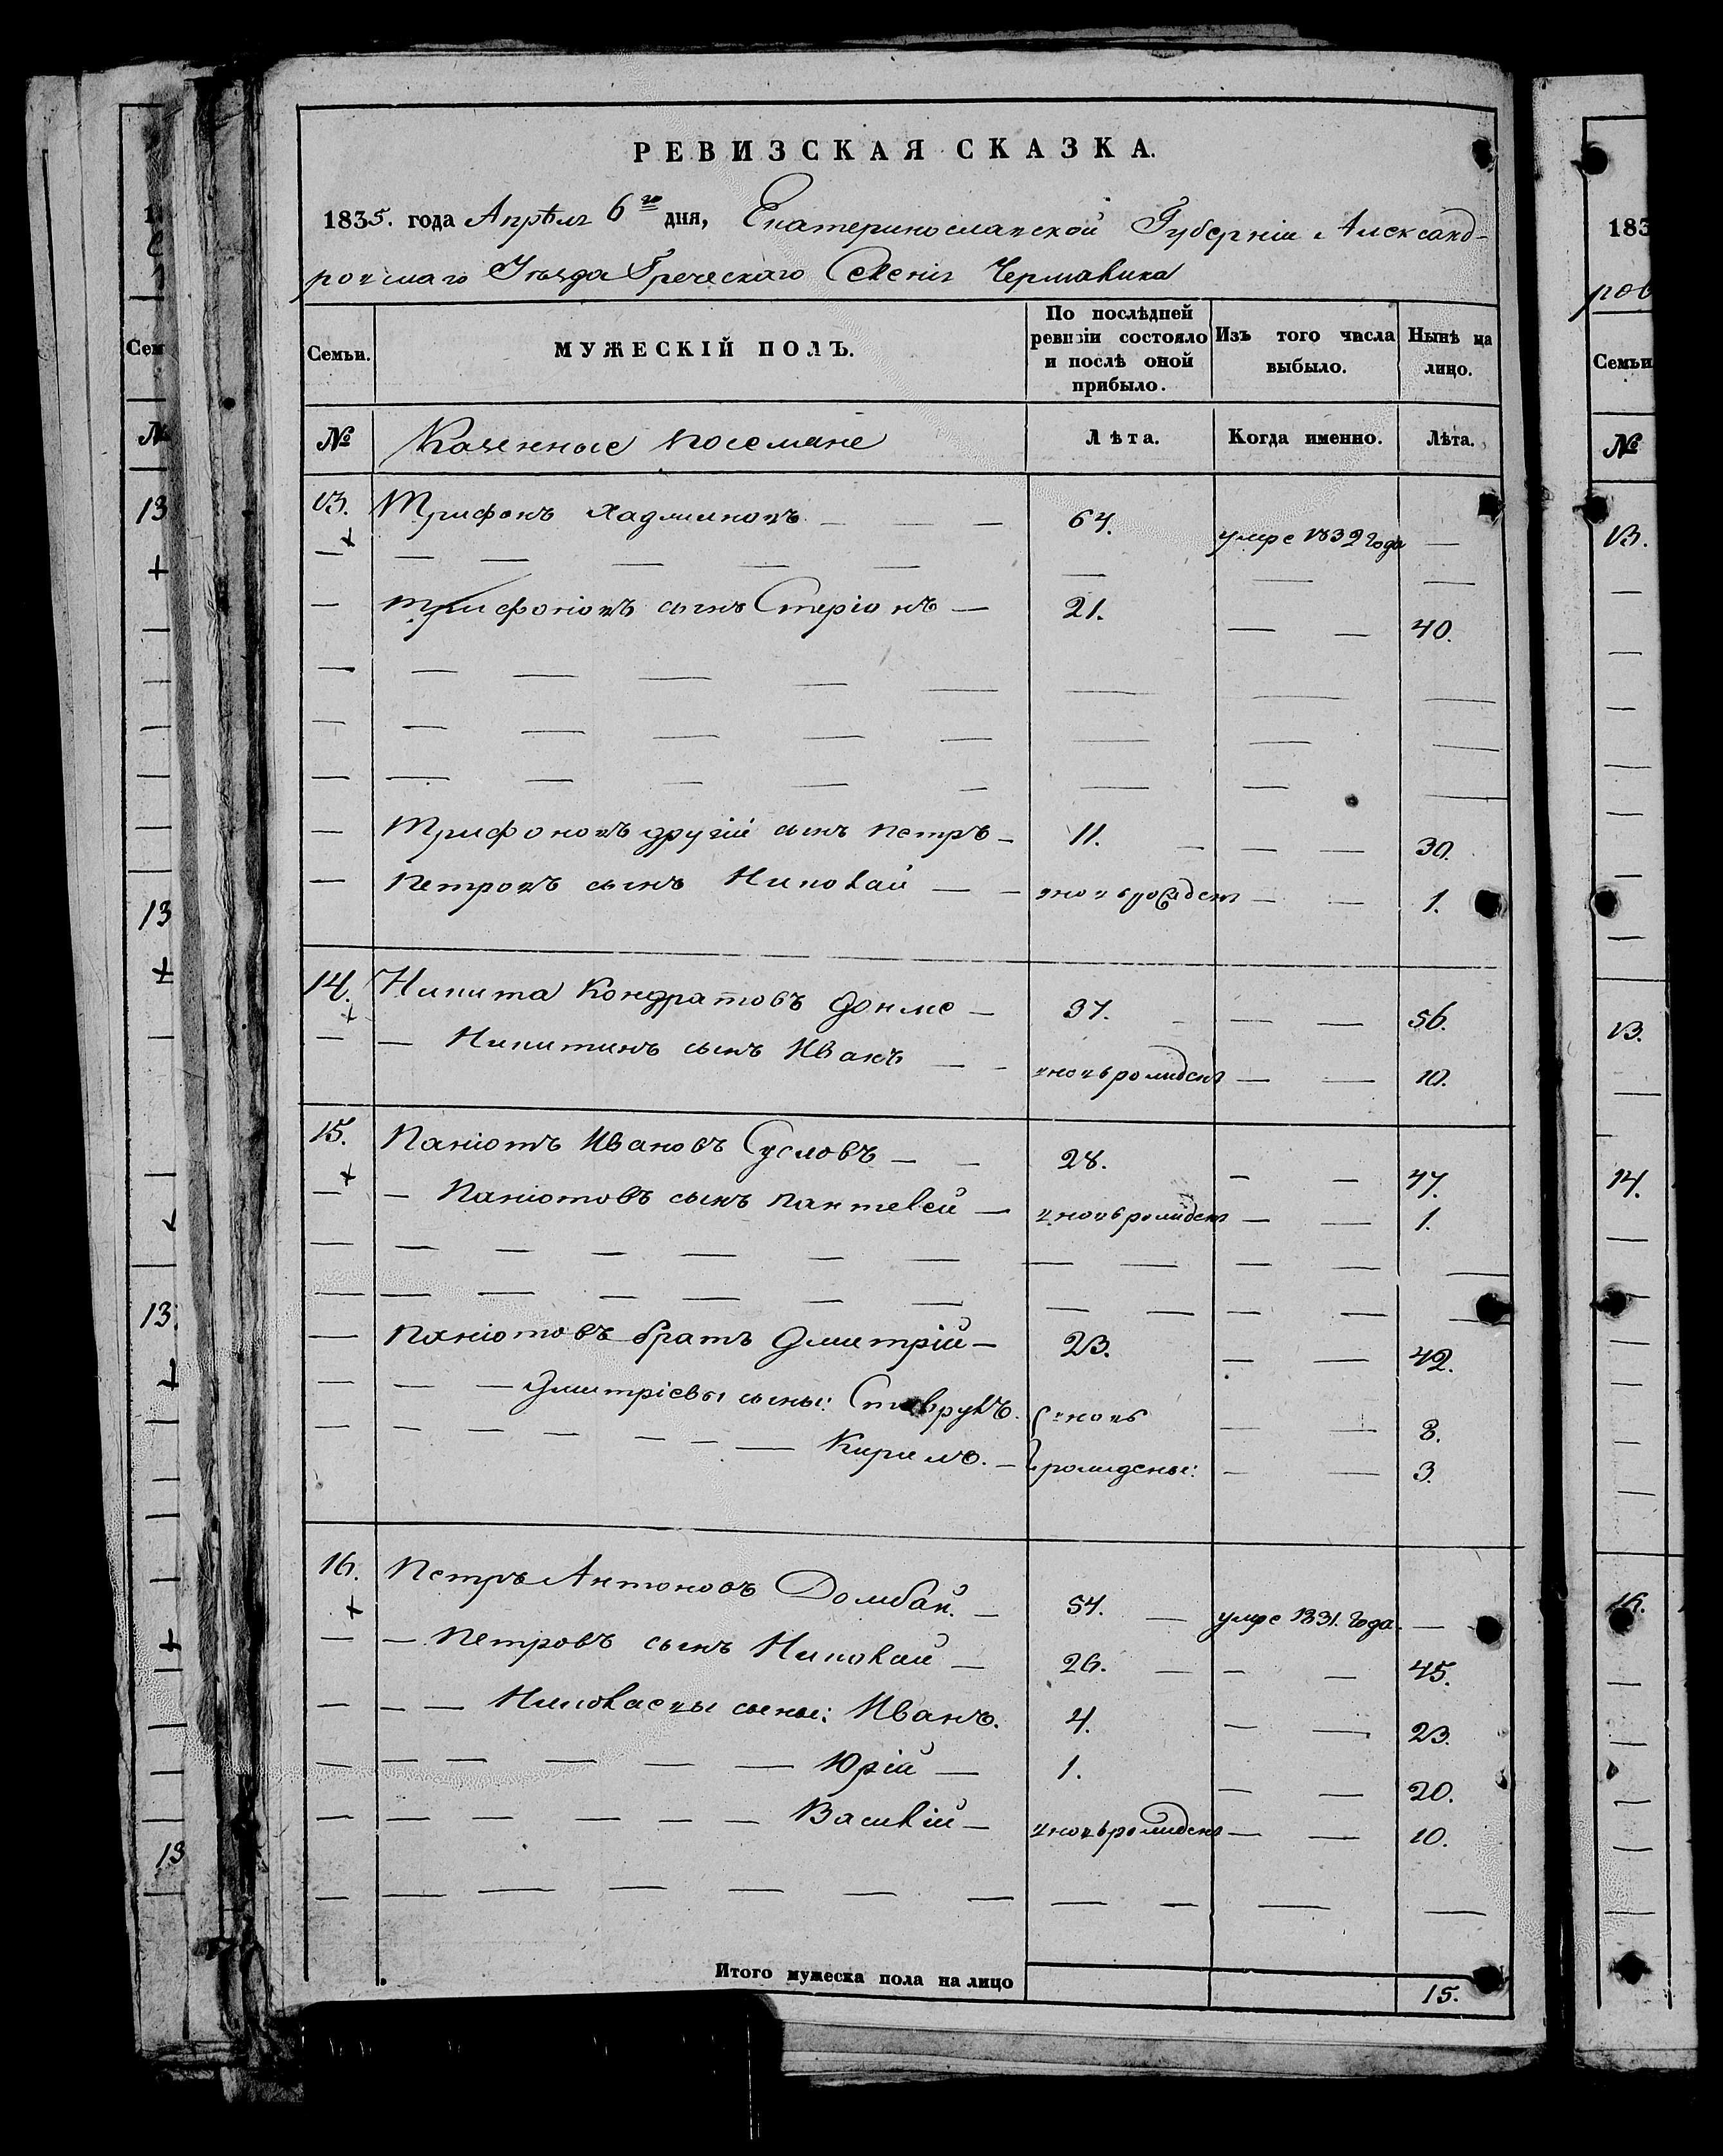 РЕВИЗСКАЯ СКАЗКА.
1835. года Апрѣля 6го дня, Екатеринославской Губерніи Александ-
ровскаго Уѣзда Греческаго Селенія Чермалика
Семьи. МУЖЕСКІЙ ПОЛЪ. По послѣдней ревизіи состояло и послѣ оной прибыло. Изъ того числа выбыло. Нынѣ на лицо.
№ Казенные поселяне Лѣта. Когда именно. Лѣта.
13. Трифонъ Хаджиновъ 64. умре 1832 года
Трифоновъ сынъ Стеріонъ 21. 40.
Трифоновъ другій сынъ Петръ 11. 30.
Петровъ сынъ Николай вновьрожденъ 1.
14. Никита Кондратовъ 37. 56.
Никитинъ сынъ Иванъ вновьрожденъ 10.
15. Паніотъ Ивановъ Сусловъ 28. 47.
Паніотовъ сынъ Пантелей вновьрожденъ 1.
Паніотовъ братъ Дмитрій 23. 42.
Дмитріевы сыны: Ставрулъ. вновь 8.
Кирилъ. рождены: 3.
16. Петръ Антоновъ Домбай. 54. умре 1831. года.
Петровъ сынъ Николай 26. 45.
Николаевы сыны: Иванъ. 4. 23.
Юрій 1. 20.
Василій вновьрожденъ 10.
Итого мужеска пола на лицо 15.